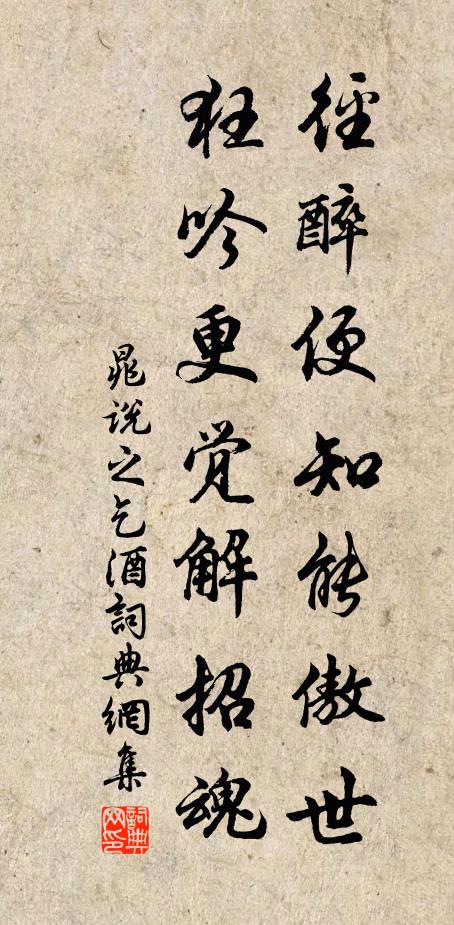 徑醉便知能傲世
狂吟更覺解招魂
晁說之乞酒詞典網集
詞典網印